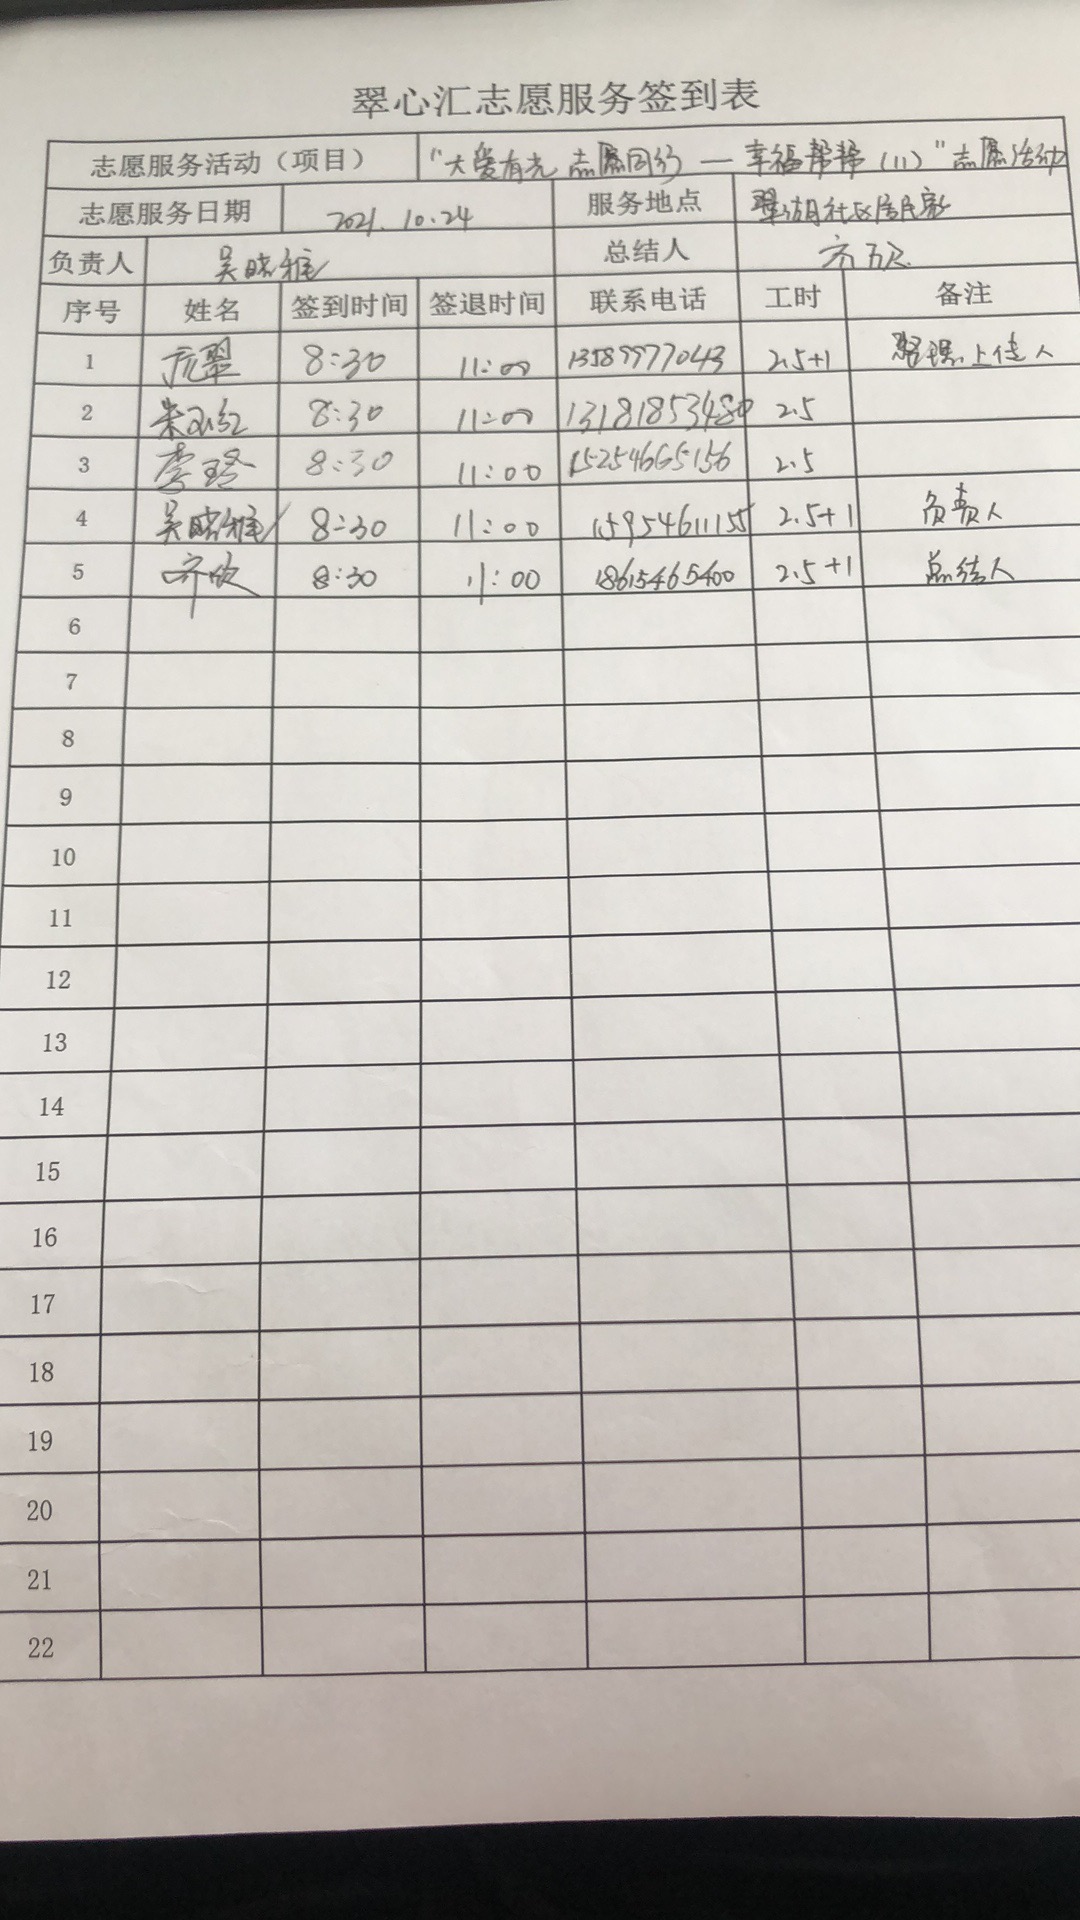 翠心汇志愿服务签到表
志愿服务活动（项目） "大爱有光 志愿同行 — 幸福帮帮（11）"志愿活动
志愿服务日期 2021.10.24 服务地点 翠湖社区居民家
负责人 吴晓雅 总结人 齐欣
序号 姓名 签到时间 签退时间 联系电话 工时 备注
1 翠 8:30 11:00 13589977043 2.5+1 管理上传人
2 朱玉红 8:30 11:00 13181853480 2.5
3 李玲 8:30 11:00 15254665156 2.5
4 吴晓雅 8:30 11:00 15954611155 2.5+1 负责人
5 齐欣 8:30 11:00 18615465400 2.5+1 总结人
6
7
8
9
10
11
12
13
14
15
16
17
18
19
20
21
22